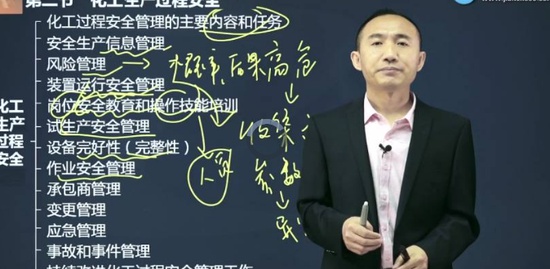 第二节 化工生产过程安全
化工过程安全管理的主要内容和任务
安全生产信息管理
风险管理
装置运行安全管理
岗位安全教育和操作技能培训
试生产安全管理
设备完好性（完整性）
作业安全管理
承包商管理
变更管理
应急管理
事故和事件管理
持续改进化工过程安全管理工作
化工
生产
过程
安全
后果
参数